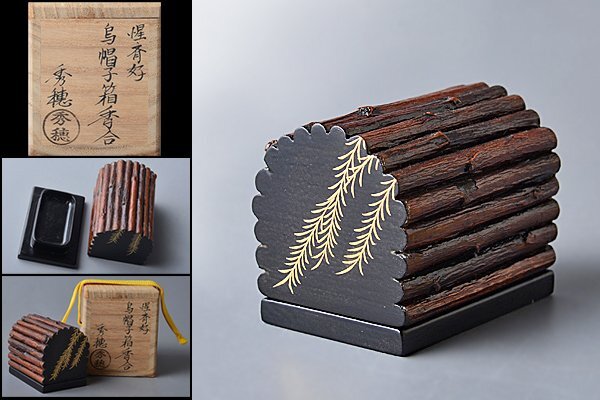 惺斎好
烏帽子箱香合
秀穂
秀穂
惺斎好
烏帽子箱香合
秀穂
秀穂